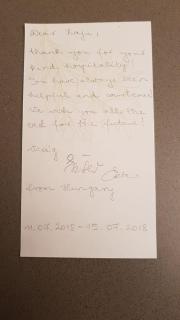 Dear
thank you for your
kind hospitality!
You have always been
helpful and
We wish you all the
for the future!
from Hungary
11.07.2018 - 15.07.2018